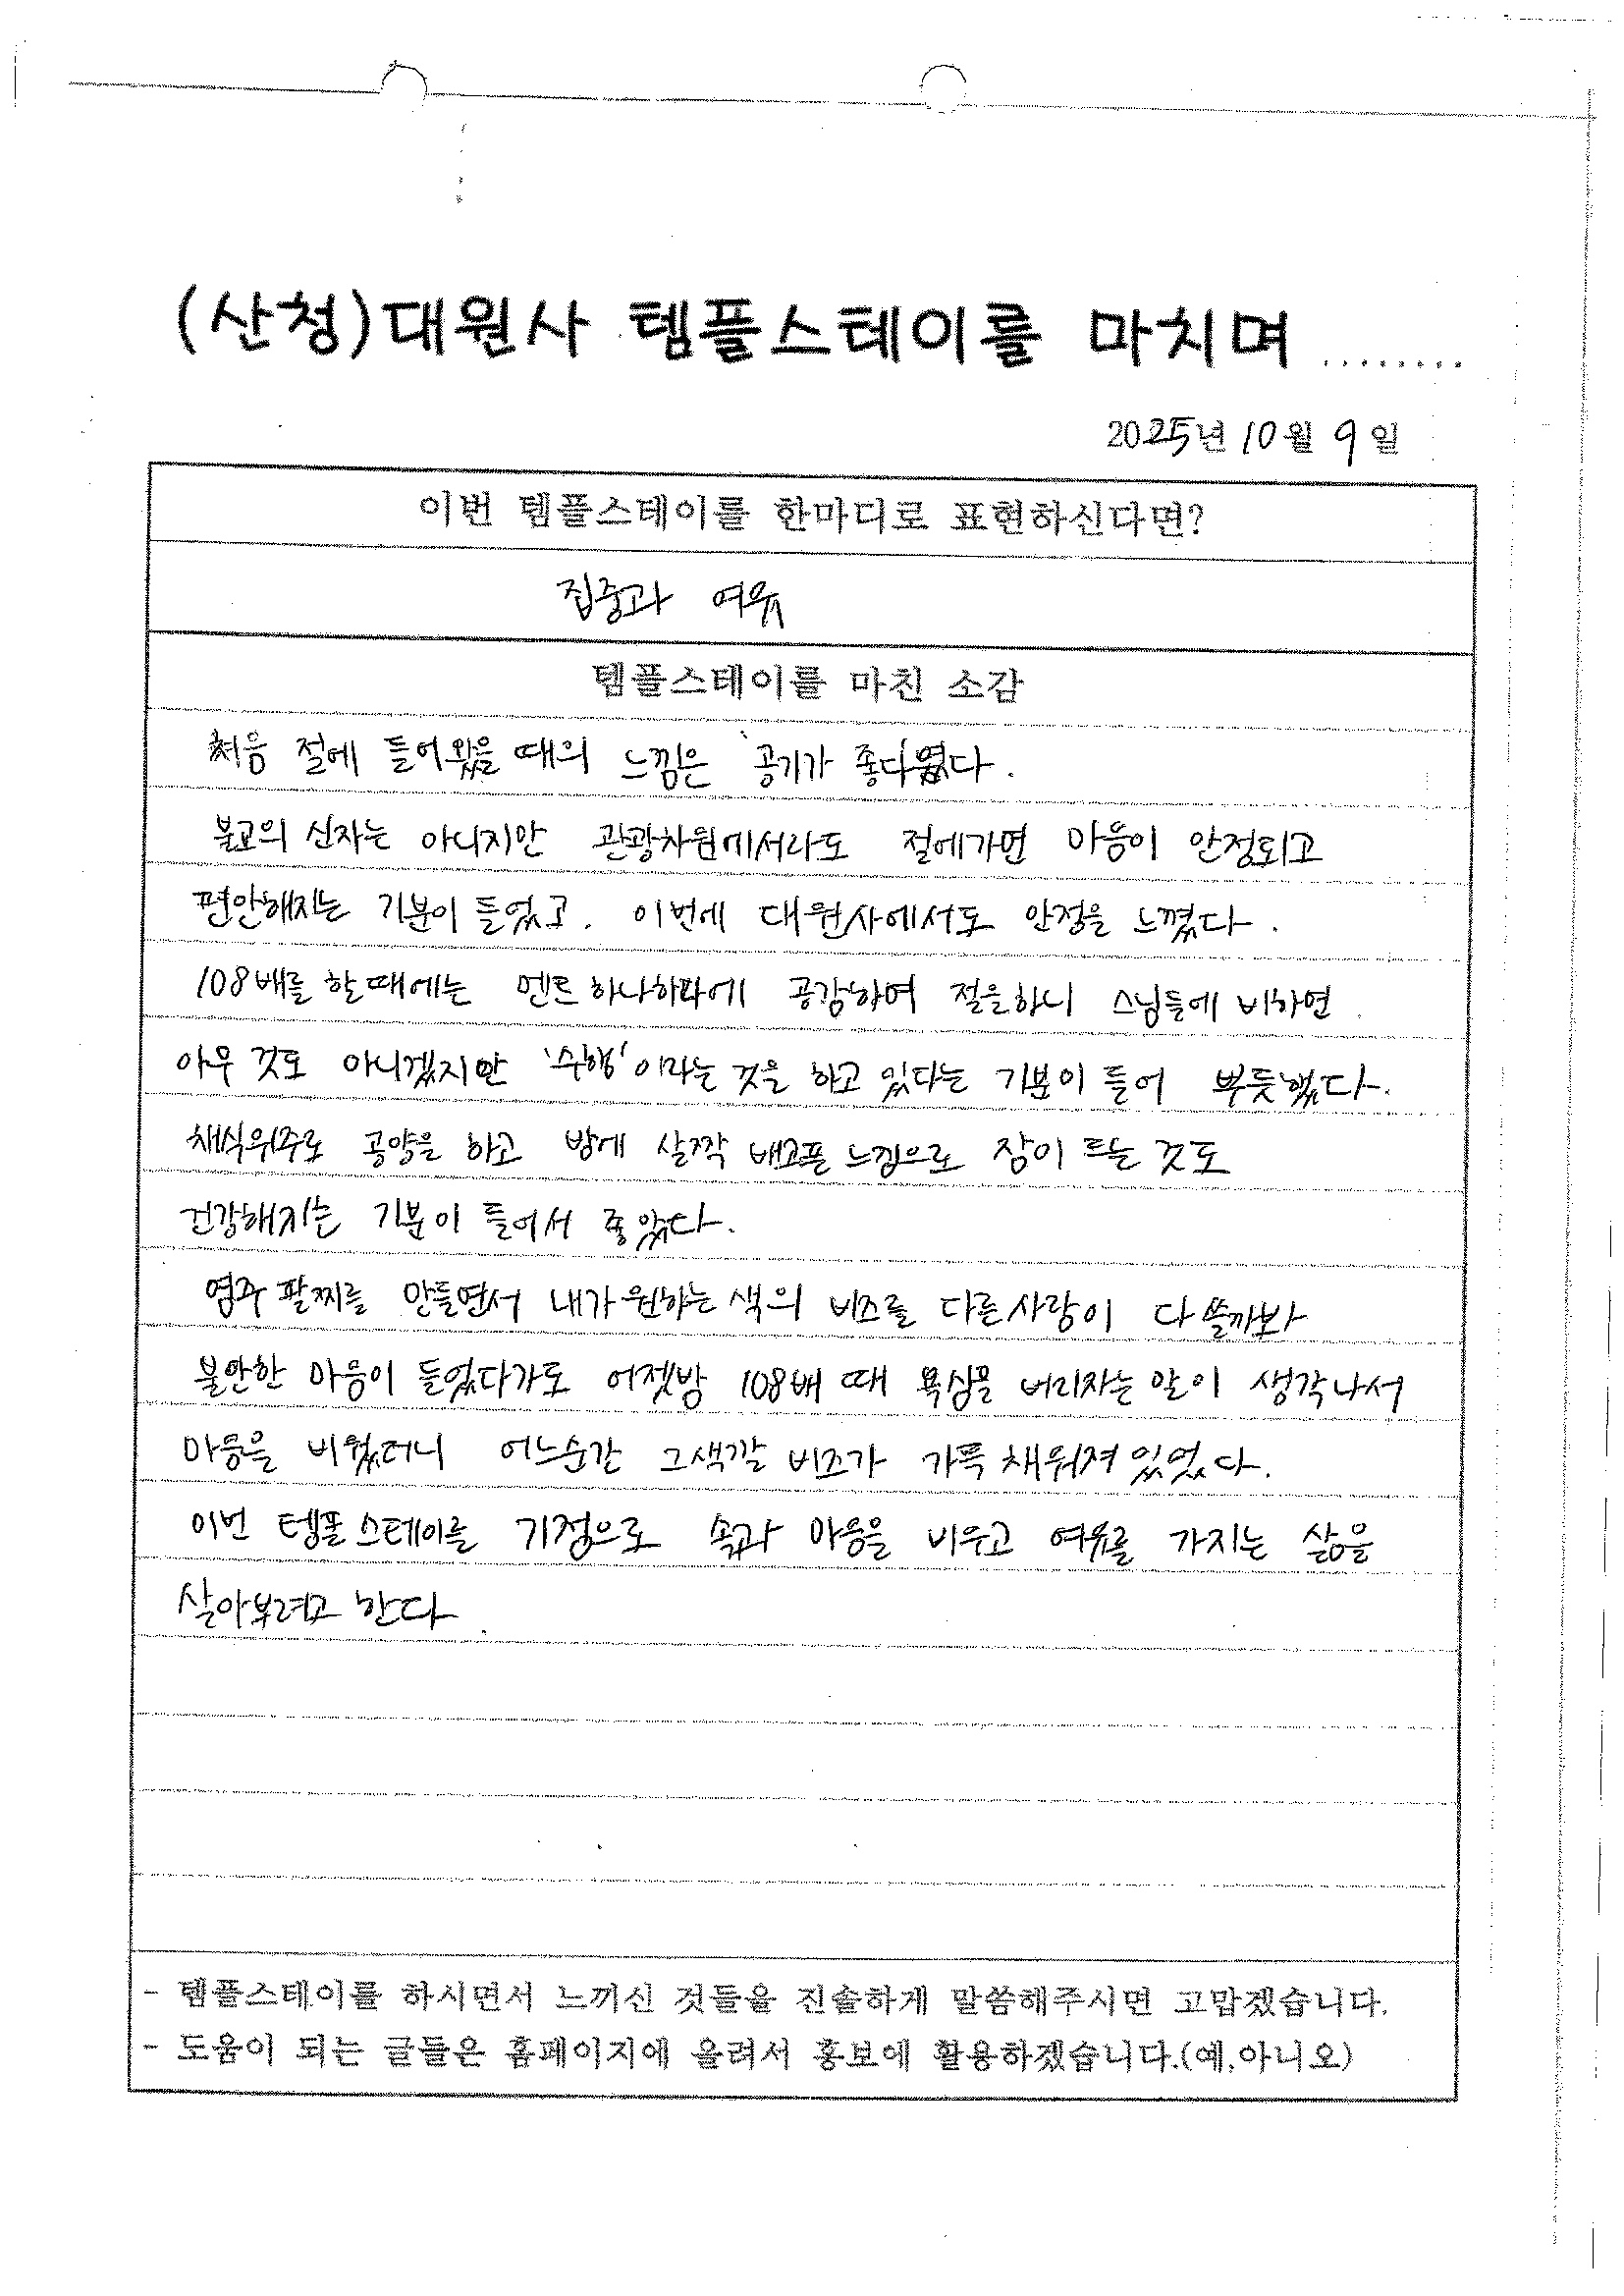 (산청)대원사 템플스테이를 마치며 ........
2025년 10월 9일
이번 템플스테이를 한마디로 표현하신다면?
집중과 여유
템플스테이를 마친 소감
처음 절에 들어왔을 때의 느낌은 '공기가 좋다'였다.
불교의 신자는 아니지만 관광차원에서라도 절에가면 마음이 안정되고
편안해지는 기분이 들었고. 이번에 대원사에서도 안정을 느꼈다.
108배를 할때에는 멘트 하나하나에 공감하여 절을하니 스님들에 비하면
아무 것도 아니겠지만 '수행'이라는 것을 하고 있다는 기분이 들어 뿌듯했다.
채식위주로 공양을 하고 밤에 살짝 배고픈 느낌으로 잠이 드는 것도
건강해지는 기분이 들어서 좋았다.
염주 팔찌를 만들면서 내가 원하는 색의 비즈를 다른사람이 다 쓸까봐
불안한 마음이 들었다가도 어젯밤 108배 때 욕심을 버리자는 말이 생각나서
마음을 비웠더니 어느순간 그색깔 비즈가 가득 채워져 있었다.
이번 템플스테이를 기점으로 속과 마음을 비우고 여유를 가지는 삶을
살아보려고 한다.
- 템플스테이를 하시면서 느끼신 것들을 진솔하게 말씀해주시면 고맙겠습니다.
- 도움이 되는 글들은 홈페이지에 올려서 홍보에 활용하겠습니다.(예,아니오)